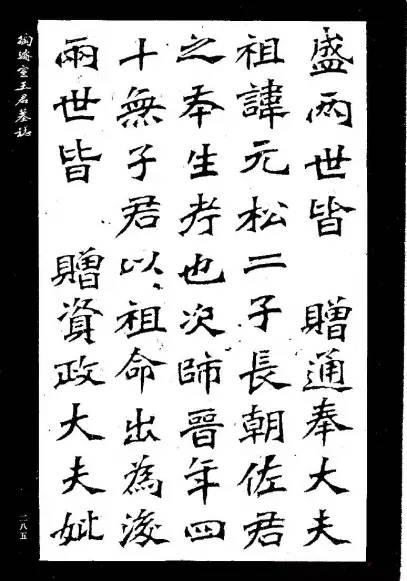 盛兩世皆　贈通奉大夫
祖諱元松二子長朝佐君
之本生考也次師晉年四
十無子君以祖命出為後
兩世皆　贈資政大夫妣
陶濬宣王君墓誌
二八五